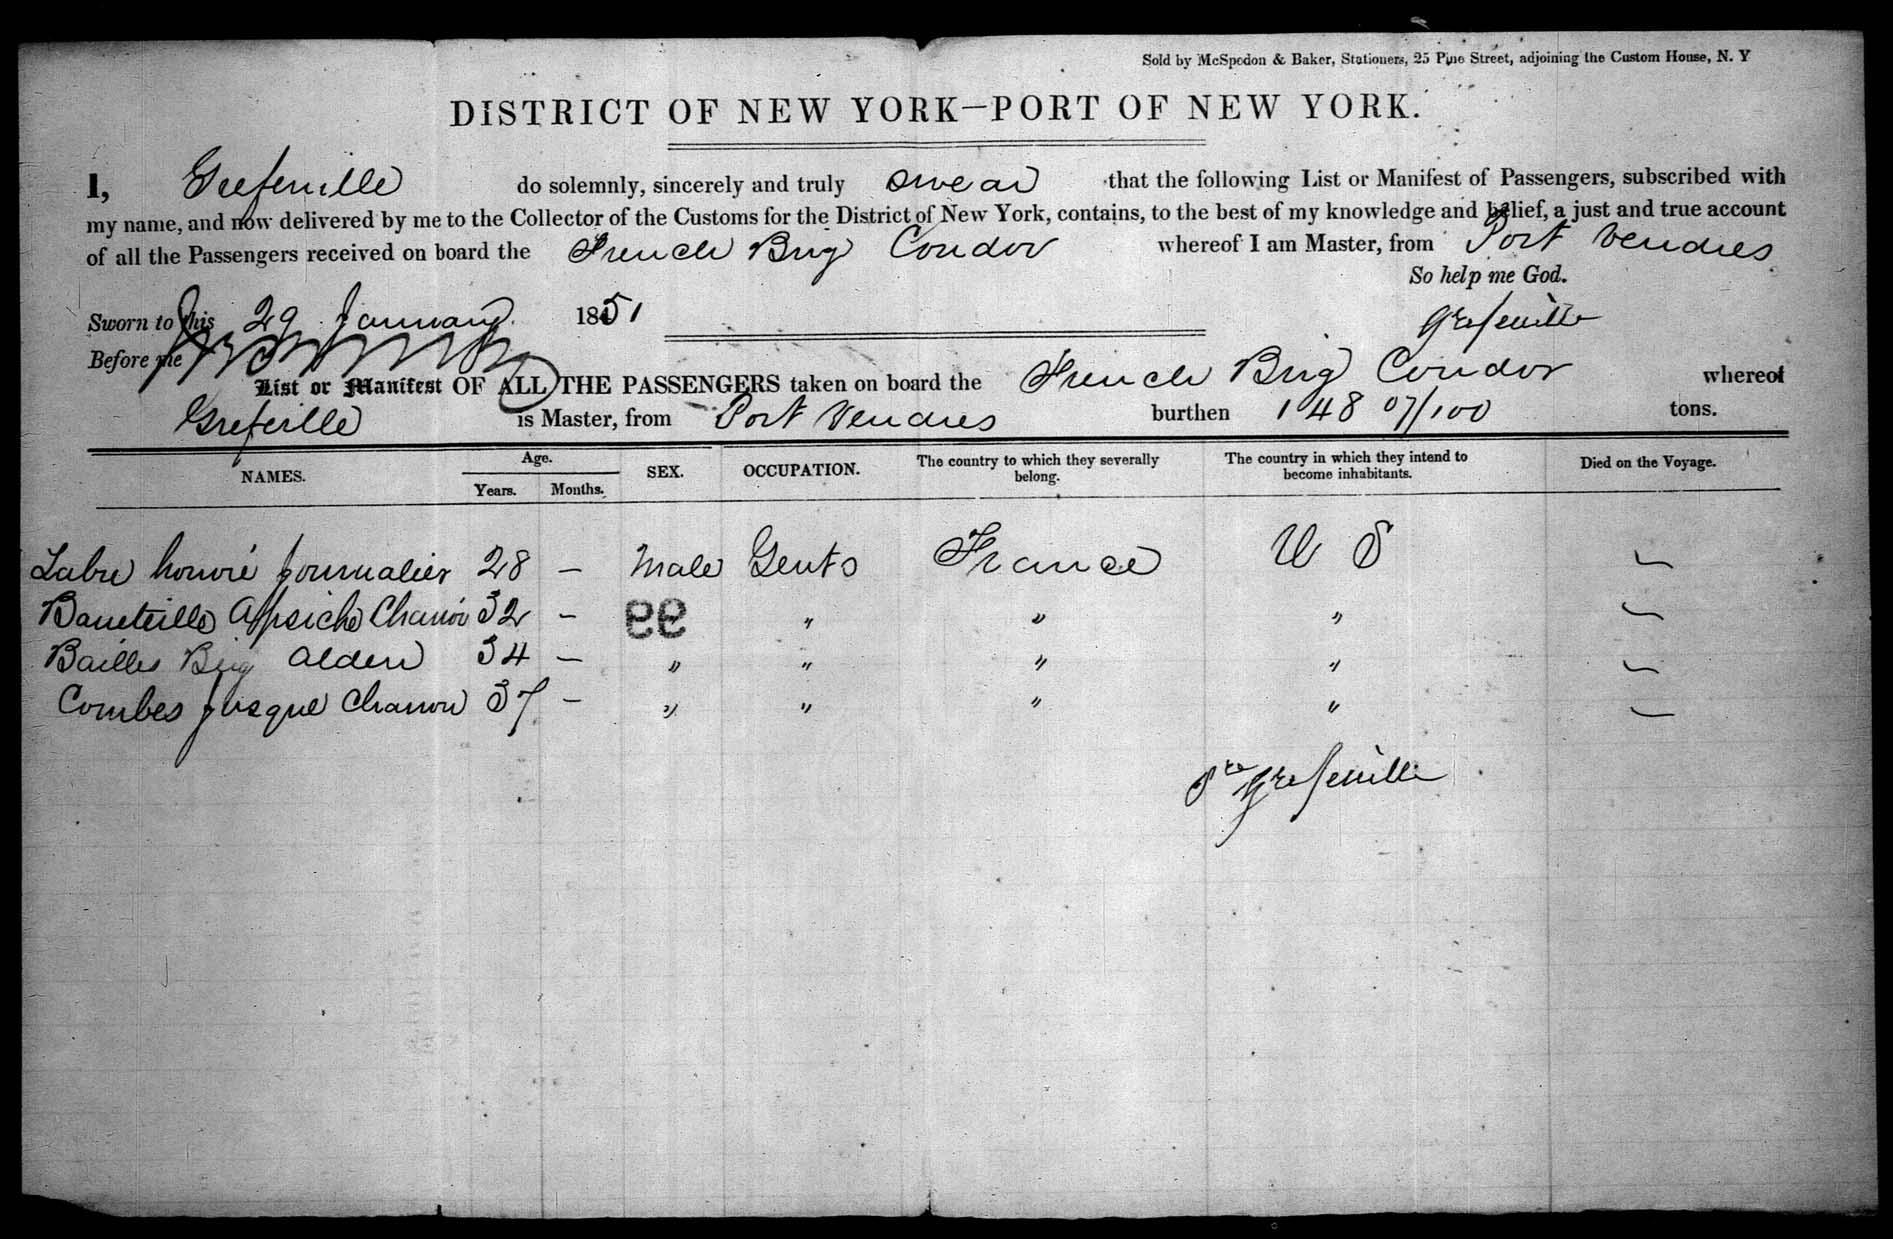 Sold by McSpedon & Baker, Stationers, 25 Pine Street, adjoining the Custom House, N. Y
DISTRICT OF NEW YORK—PORT OF NEW YORK.
I, Grefeuille do solemnly, sincerely and truly swear that the following List or Manifest of Passengers, subscribed with
my name, and now delivered by me to the Collector of the Customs for the District of New York, contains, to the best of my knowledge and belief, a just and true account
of all the Passengers received on board the French Brig Condor whereof I am Master, from Port Vendres
So help me God.
Sworn to this 29 January 1851
Grefeuille
Before me
List or Manifest OF ALL THE PASSENGERS taken on board the French Brig Condor whereof
Grefeille is Master, from Port Vendres burthen 148 07/100 tons.
NAMES. Age. Years. Months. SEX. OCCUPATION. The country to which they severally belong. The country in which they intend to become inhabitants. Died on the Voyage.
Labre honoré journalier 28 — Male Gents France U S —
32 — " " " —
99
Bailles Brig Alden 34 — " " " " —
Combes Chanon 37 — " " " " —
Grefeuille